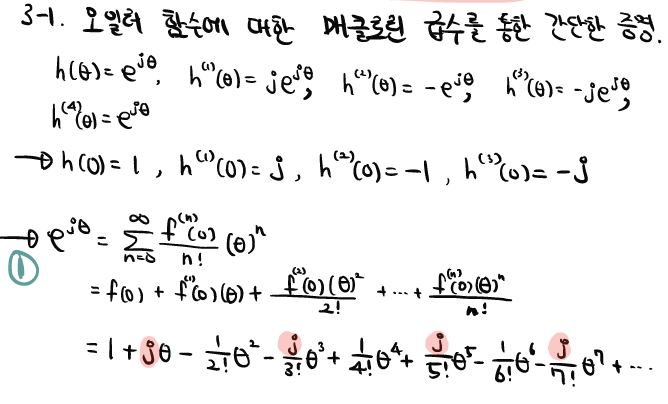 3-1. 오일러 함수에 대한 매클로린 급수를 통한 간단한 증명.
h(θ) = e^{jθ}, h^{(1)}(θ) = je^{jθ}, h^{(2)}(θ) = -e^{jθ}, h^{(3)}(θ) = -je^{jθ},
h^{(4)}(θ) = e^{jθ}
→ h(0) = 1, h^{(1)}(0) = j, h^{(2)}(0) = -1, h^{(3)}(0) = -j
→ ① e^{jθ} = \sum_{n=0}^{∞} \frac{f^{(n)}(0)}{n!} (θ)^n
= f(0) + f^{(1)}(0)(θ) + \frac{f^{(2)}(0)(θ)^2}{2!} + ··· + \frac{f^{(n)}(0)(θ)^n}{n!}
= 1 + jθ - \frac{1}{2!}θ^2 - \frac{j}{3!}θ^3 + \frac{1}{4!}θ^4 + \frac{j}{5!}θ^5 - \frac{1}{6!}θ^6 - \frac{j}{7!}θ^7 + ···